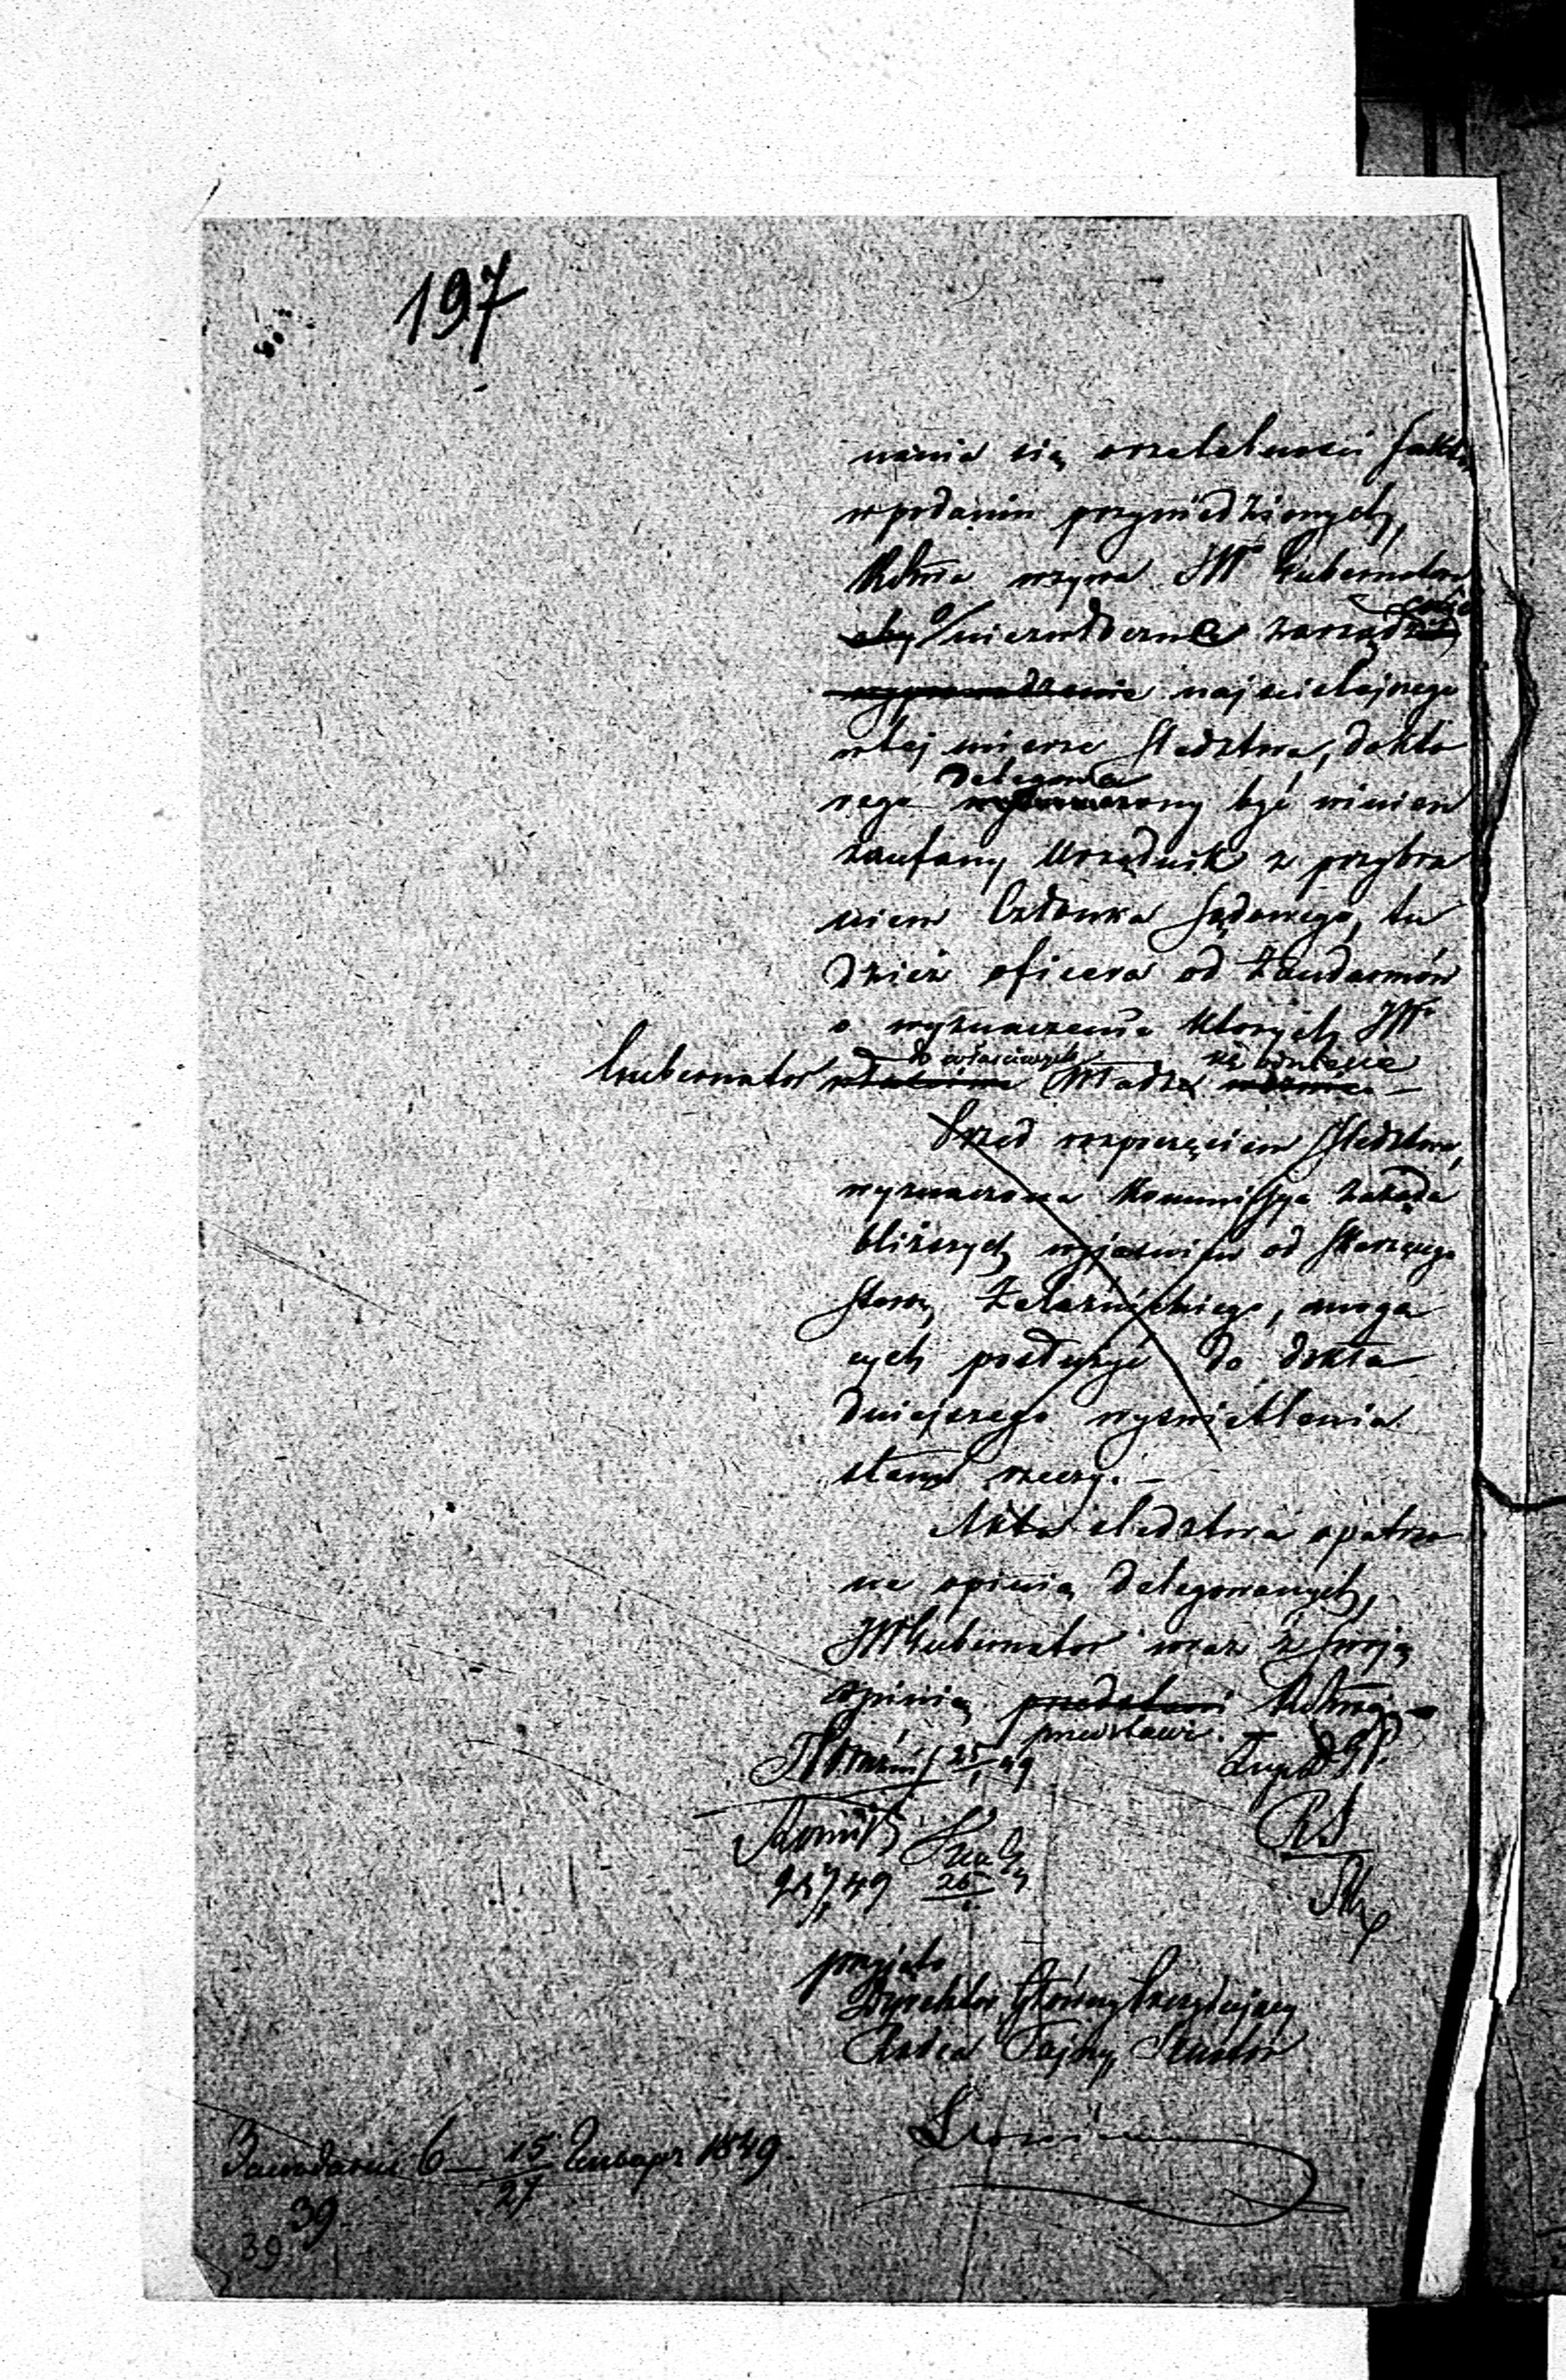 197
nania się o rzetelności faktó
w podaniu przywiedzionych,
Kōmīa wzywa JWo Gubernatora
aby o niezwłoczne zarządzenie
wyprowadzenie najściślejszego
w tej mierze śledztwa, do któ
rego Delegowany być winien
zaufany Urzędnik z przybra
niem Członka Sądowego, tu
dzież oficera od Żandarmów
o wyznaczenie których JW.
Gubernator do właściwych Władz się odniesie
Przed rozpoczęciem śledztwa,
wyznaczona Kommissya zażąda
bliższych wyjaśnień od skarżącego
Żeleźnickiego, mogą
cych posłużyć do dokła
dniejszego wyświetlenia
stanu rzeczy. —
Akta śledztwa opatrzo
ne opinią delegowanych,
JW Gubernator wraz z swoją
opinią przedstawi
przedstawi.
25 49
26
przyjęto
Dyrektor Główny Prezydujący
Radca Tajny, Senator
6 — 15/27 Января 1849.
39
39